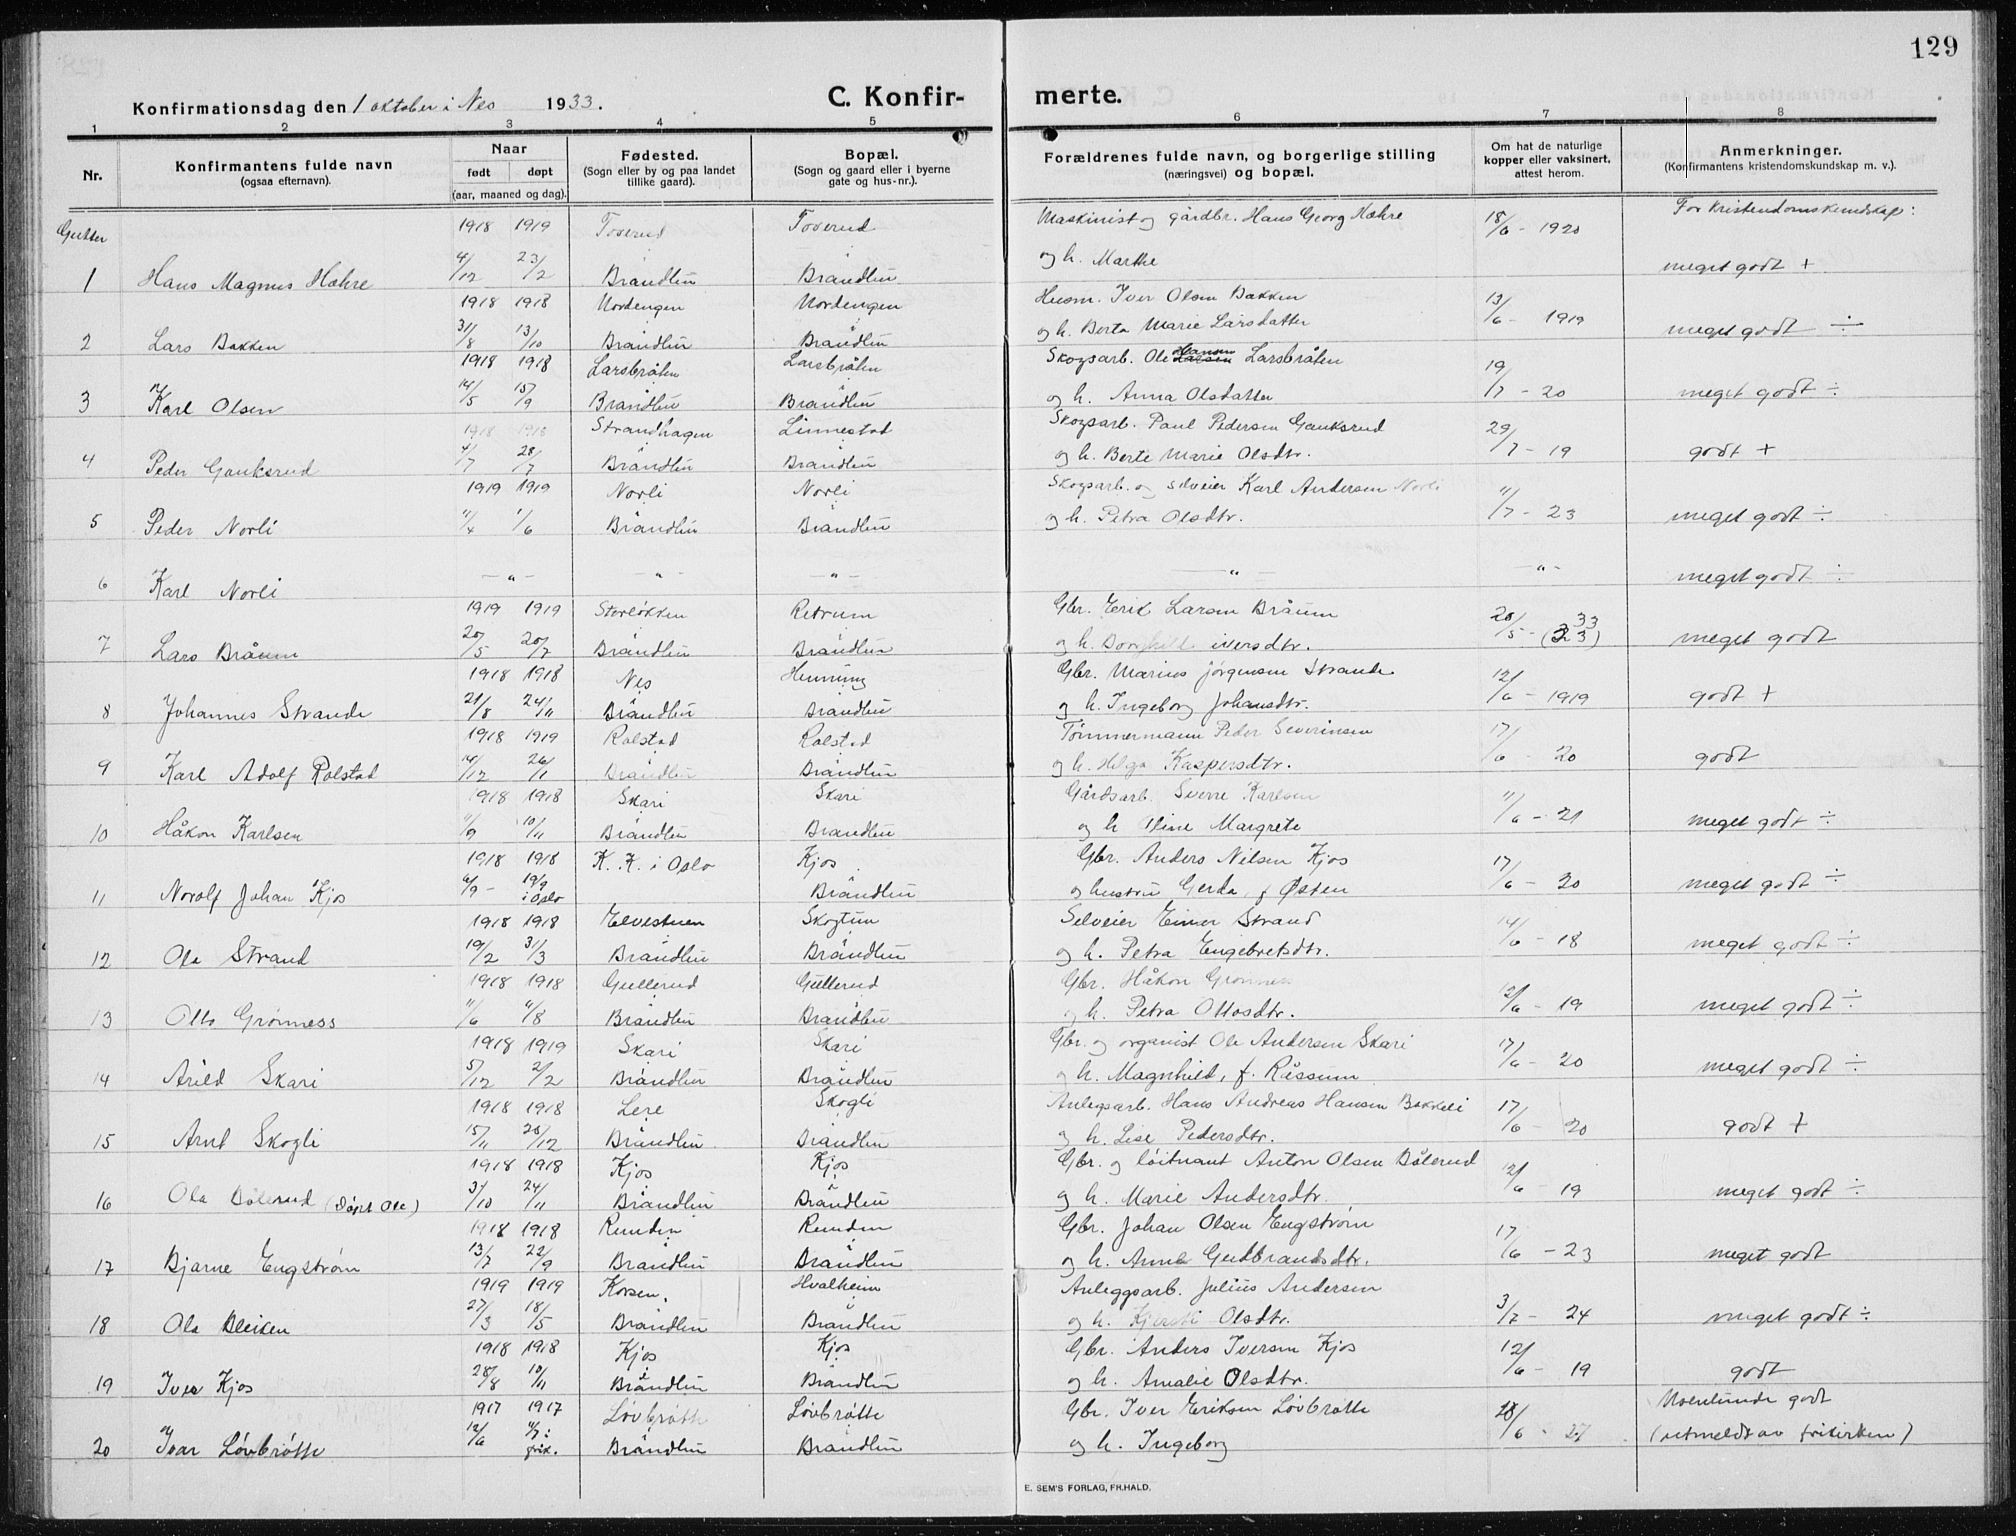 129
Konfirmationsdag den 1 oktober i Nes 1933. C. Konfirmerte.
1 2 3 4 5 6 7 8
Nr. Konfirmantens fulde navn (ogsaa efternavn). Naar født døpt (aar, maaned og dag). Fødested. (Sogn eller by og paa landet tillike gaard). Bopæl. (Sogn og gaard eller i byerne gate og hus-nr.). Forældrenes fulde navn, og borgerlige stilling (næringsvei) og bopæl. Om hat de naturlige kopper eller vaksinert, attest herom. Anmerkninger. (Konfirmantens kristendomskundskap m. v.).
Gutter 1918 1919 Toverud Toverud Maskinist og gårdbr. Hans Georg Hæhre 18/6 - 1920 For Kristendomskundskap:
1 Hans Magnus Hæhre 4/12 23/2 Brandbu Brandbu og h. Marthe meget godt +
1918 1918 Nordengen Nordengen Husm. Iver Olsen Bakken 13/6 - 1919
2 Lars Bakken 31/8 13/10 Brandbu Brandbu og h. Berta Marie Larsdatter meget godt ÷
1918 1918 Larsbråten Larsbråten Skogsarb. Ole Hansen Larsbråten 19/7 - 20
3 Karl Olsen 14/5 15/9 Brandbu Brandbu og h. Anna Olsdatter meget godt ÷
1918 1918 Strandhagen Linnestad Skogsarb. Paul Pedersen Gauksrud 29/7 - 19
4 Peder Gauksrud 4/7 28/7 Brandbu Brandbu og h. Berte Marie Olsdtr. godt +
1919 1919 Norli Norli Skogsarb. og selveier Karl Andersen Norli 11/7 - 23
5 Peder Norli 11/4 1/6 Brandbu Brandbu og h. Petra Olsdtr. meget godt ÷
6 Karl Norli - " - - " - - " - - " - - " - meget godt ÷
1919 1919 Storløkken Retrum Gbr. Erik Larsen Bråum 20/5 - (33)
7 Lars Bråum 20/5 20/7 Brandbu Brandbu og h. Borghild iversdtr. meget godt
1918 1918 Nes Henning Gbr. Marius Jørgensen Strande 12/6 - 1919
8 Johannes Strande 21/8 24/11 Brandbu Brandbu og h. Ingeborg Johansdtr. godt +
1918 1919 Rolstad Rolstad Tømmermann Peder Severinsen 17/6 - 20
9 Karl Adolf Rolstad 14/12 26/1 Brandbu Brandbu og h. Helga Kaspersdtr. godt
1918 1918 Skari Skari Gårdsarb. Sverre Karlsen 11/6 - 21
10 Håkon Karlsen 11/9 10/11 Brandbu Brandbu og h Oline Margrete meget godt ÷
1918 1918 K. K. i Oslo Kjos Gbr. Anders Nilsen Kjos 17/6 - 20
11 Norolf Johan Kjos 6/9 - 19/9 i Oslo Brandbu og hustru Gerda, f Østen meget godt ÷
1918 1918 Elvestuen Skogtun Selveier Einar Strand 14/6 - 18
12 Ola Strand 19/2 31/3 Brandbu Brandbu og h. Petra Engebretsdtr. meget godt ÷
1918 1918 Gullerud Gullerud Gbr. Håkon Grønness 12/6 - 19
13 Otto Grønness 11/6 11/8 Brandbu Brandbu og h. Petra Ottosdtr. meget godt ÷
1918 1919 Skari Skari Gbr. og organist Ole Andersen Skari 17/6 - 20
14 Arild Skari 5/12 2/2 Brandbu Brandbu og h. Magnhild, f. Råssum meget godt ÷
1918 1918 Lere Skogli Anlegsarb. Hans Andreas Hansen Bakkeli 17/6 - 20
15 Arnt Skogli 15/11 26/12 Brandbu Brandbu og h. Lise Pedersdtr. godt +
1918 1918 Kjos Kjos Gbr. og løitnant Anton Olsen Bålerud 12/6 - 19
16 Ola Bålerud (Døpt Ole) 3/10 24/11 Brandbu Brandbu og h. Marie Andersdtr. meget godt ÷
1918 1918 Runden Runden Gbr. Johan Olsen Engstrøm 17/6 - 23
17 Bjarne Engstrøm 13/7 22/9 Brandbu Brandbu og h. Anna Gudbrandsdtr. meget godt
1919 1919 Korsen. Hvalheim Anleggsarb. Julius Andersen 3/7 - 24
18 Ola Bleiken 27/3 18/5 Brandbu Brandbu og h. Kjersti Olsdtr. meget godt ÷
1918 1918 Kjos Kjos Gbr. Anders Iversen Kjos 12/6 - 19
19 Iver Kjos 28/8 10/11 Brandbu Brandbu og h. Amalie Olsdtr. godt
1917 1917 Løvbråtte Løvbråtte Gbr. Iver Eriksen Løvbråtte 28/6 - 27 Noenlunde godt
20 Ivar Løvbråtte 12/6 Brandbu Brandbu og h. Ingeborg (utmeldt av frikirken)
E. SEM'S FORLAG, FR.HALD.